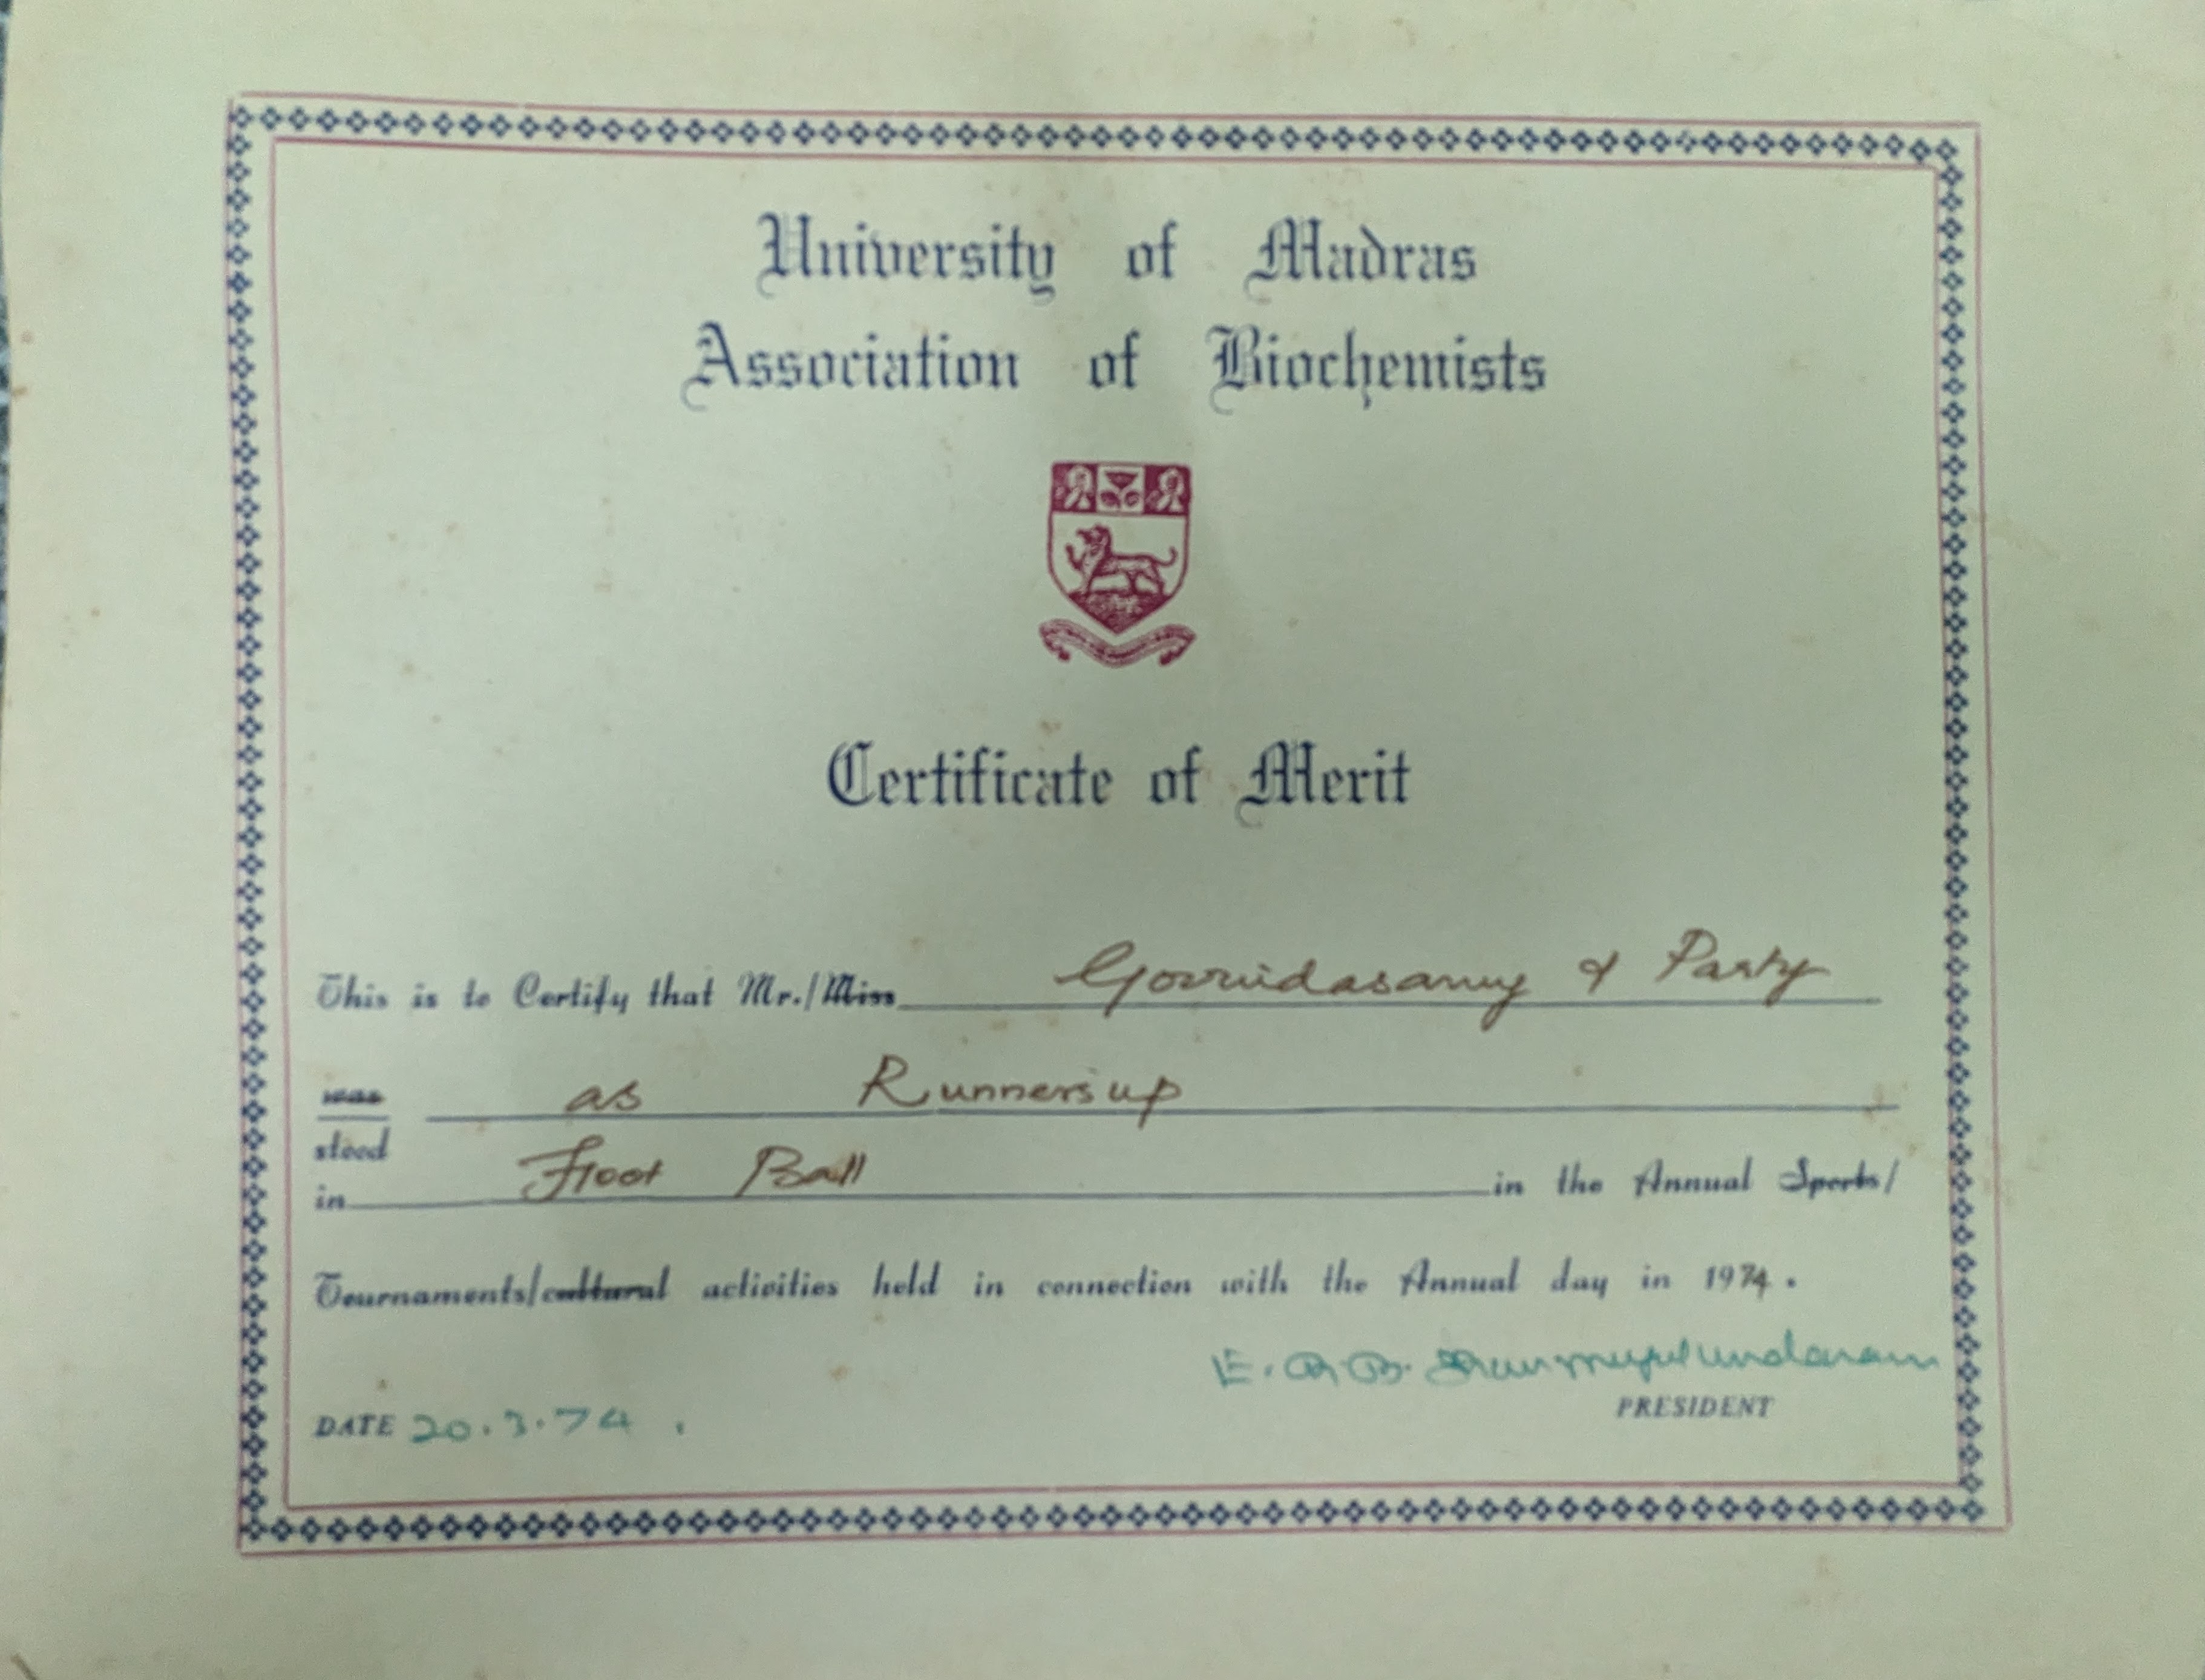 University of Madras
Association of Biochemists
Certificate of Merit
This is to Certify that Mr./Miss Govindasamy & Party
was as Runners up
stood
in Foot Ball in the Annual Sports/
Tournaments/cultural activities held in connection with the Annual day in 1974.
E. R. B. Shanmugasundaram
PRESIDENT
DATE 20.3.74.